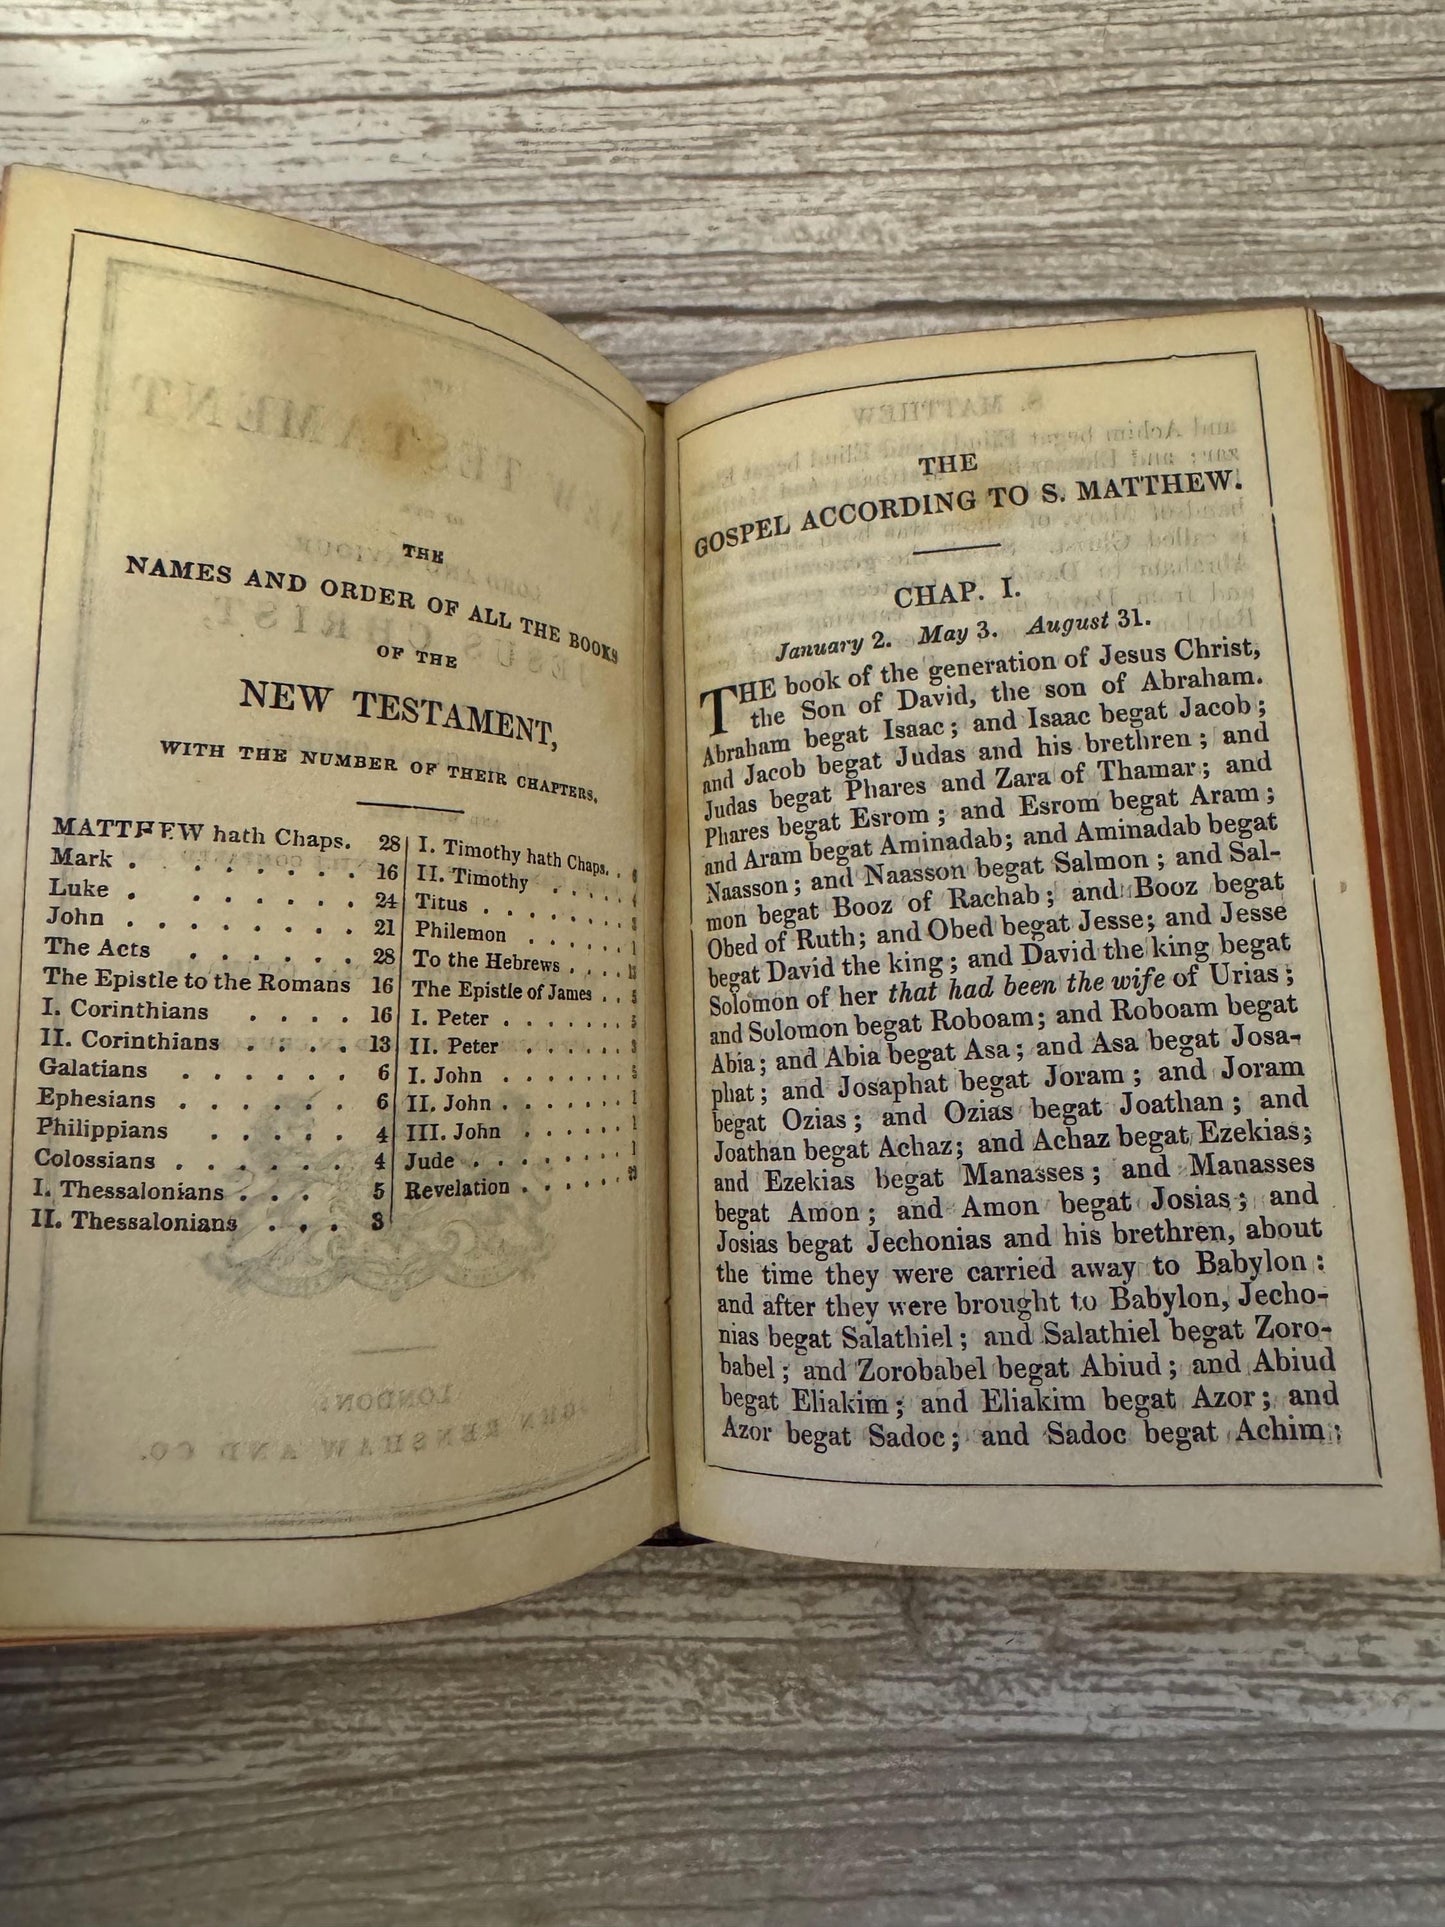 THE
NAMES AND ORDER OF ALL THE BOOKS
OF THE
NEW TESTAMENT,
WITH THE NUMBER OF THEIR CHAPTERS.
MATTHEW hath Chaps. 28
Mark . . . . . . . 16
Luke . . . . . . . 24
John . . . . . . . . 21
The Acts . . . . . . 28
The Epistle to the Romans 16
I. Corinthians . . . . 16
II. Corinthians . . . . 13
Galatians . . . . . . 6
Ephesians . . . . . . 6
Philippians . . . . . 4
Colossians . . . . . . 4
I. Thessalonians . . . 5
II. Thessalonians . . . 3
I. Timothy hath Chaps. . 6
II. Timothy . . . . . . 4
Titus . . . . . . . . 3
Philemon . . . . . . 1
To the Hebrews . . . . 13
The Epistle of James . . 5
I. Peter . . . . . . . 5
II. Peter . . . . . . 3
I. John . . . . . . . 5
II. John . . . . . . . 1
III. John . . . . . . 1
Jude . . . . . . . . 1
Revelation . . . . . . 22
THE
GOSPEL ACCORDING TO S. MATTHEW.
CHAP. I.
January 2. May 3. August 31.
THE book of the generation of Jesus Christ,
the Son of David, the son of Abraham.
Abraham begat Isaac; and Isaac begat Jacob;
and Jacob begat Judas and his brethren; and
Judas begat Phares and Zara of Thamar; and
Phares begat Esrom; and Esrom begat Aram;
and Aram begat Aminadab; and Aminadab begat
Naasson; and Naasson begat Salmon; and Sal-
mon begat Booz of Rachab; and Booz begat
Obed of Ruth; and Obed begat Jesse; and Jesse
begat David the king; and David the king begat
Solomon of her that had been the wife of Urias;
and Solomon begat Roboam; and Roboam begat
Abia; and Abia begat Asa; and Asa begat Josa-
phat; and Josaphat begat Joram; and Joram
begat Ozias; and Ozias begat Joathan; and
Joathan begat Achaz; and Achaz begat Ezekias;
and Ezekias begat Manasses; and Manasses
begat Amon; and Amon begat Josias; and
Josias begat Jechonias and his brethren, about
the time they were carried away to Babylon:
and after they were brought to Babylon, Jecho-
nias begat Salathiel; and Salathiel begat Zoro-
babel; and Zorobabel begat Abiud; and Abiud
begat Eliakim; and Eliakim begat Azor; and
Azor begat Sadoc; and Sadoc begat Achim;